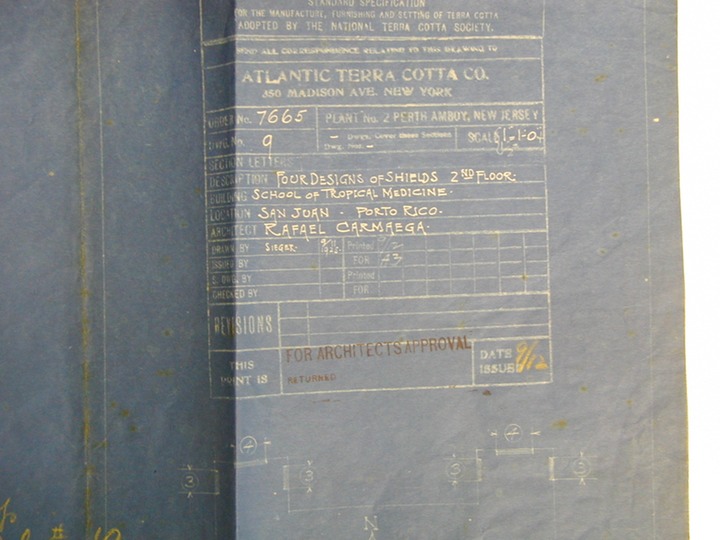 STANDARD SPECIFICATION
FOR THE MANUFACTURE, FURNISHING AND SETTING OF TERRA COTTA
ADOPTED BY THE NATIONAL TERRA COTTA SOCIETY.
SEND ALL CORRESPONDENCE RELATING TO THIS DRAWING TO
ATLANTIC TERRA COTTA CO.
350 MADISON AVE. NEW YORK
ORDER No. 7665 PLANT No. 2 PERTH AMBOY, NEW JERSEY
DWG. No. 9 - Dwgs. Cover these Sections SCALE
Dwg. Nos. -
SECTION LETTERS
DESCRIPTION FOUR DESIGNS OF SHIELDS 2ND FLOOR.
BUILDING SCHOOL OF TROPICAL MEDICINE.
LOCATION SAN JUAN - PORTO RICO.
ARCHITECT RAFAEL CARMAEGA.
DRAWN BY SIEGER. Printed
ISSUED BY FOR
S. DWG. BY Printed
CHECKED BY FOR
REVISIONS
THIS PRINT IS FOR ARCHITECTS APPROVAL DATE ISSUED 9/12
RETURNED
4 4
3 3 3 3
N